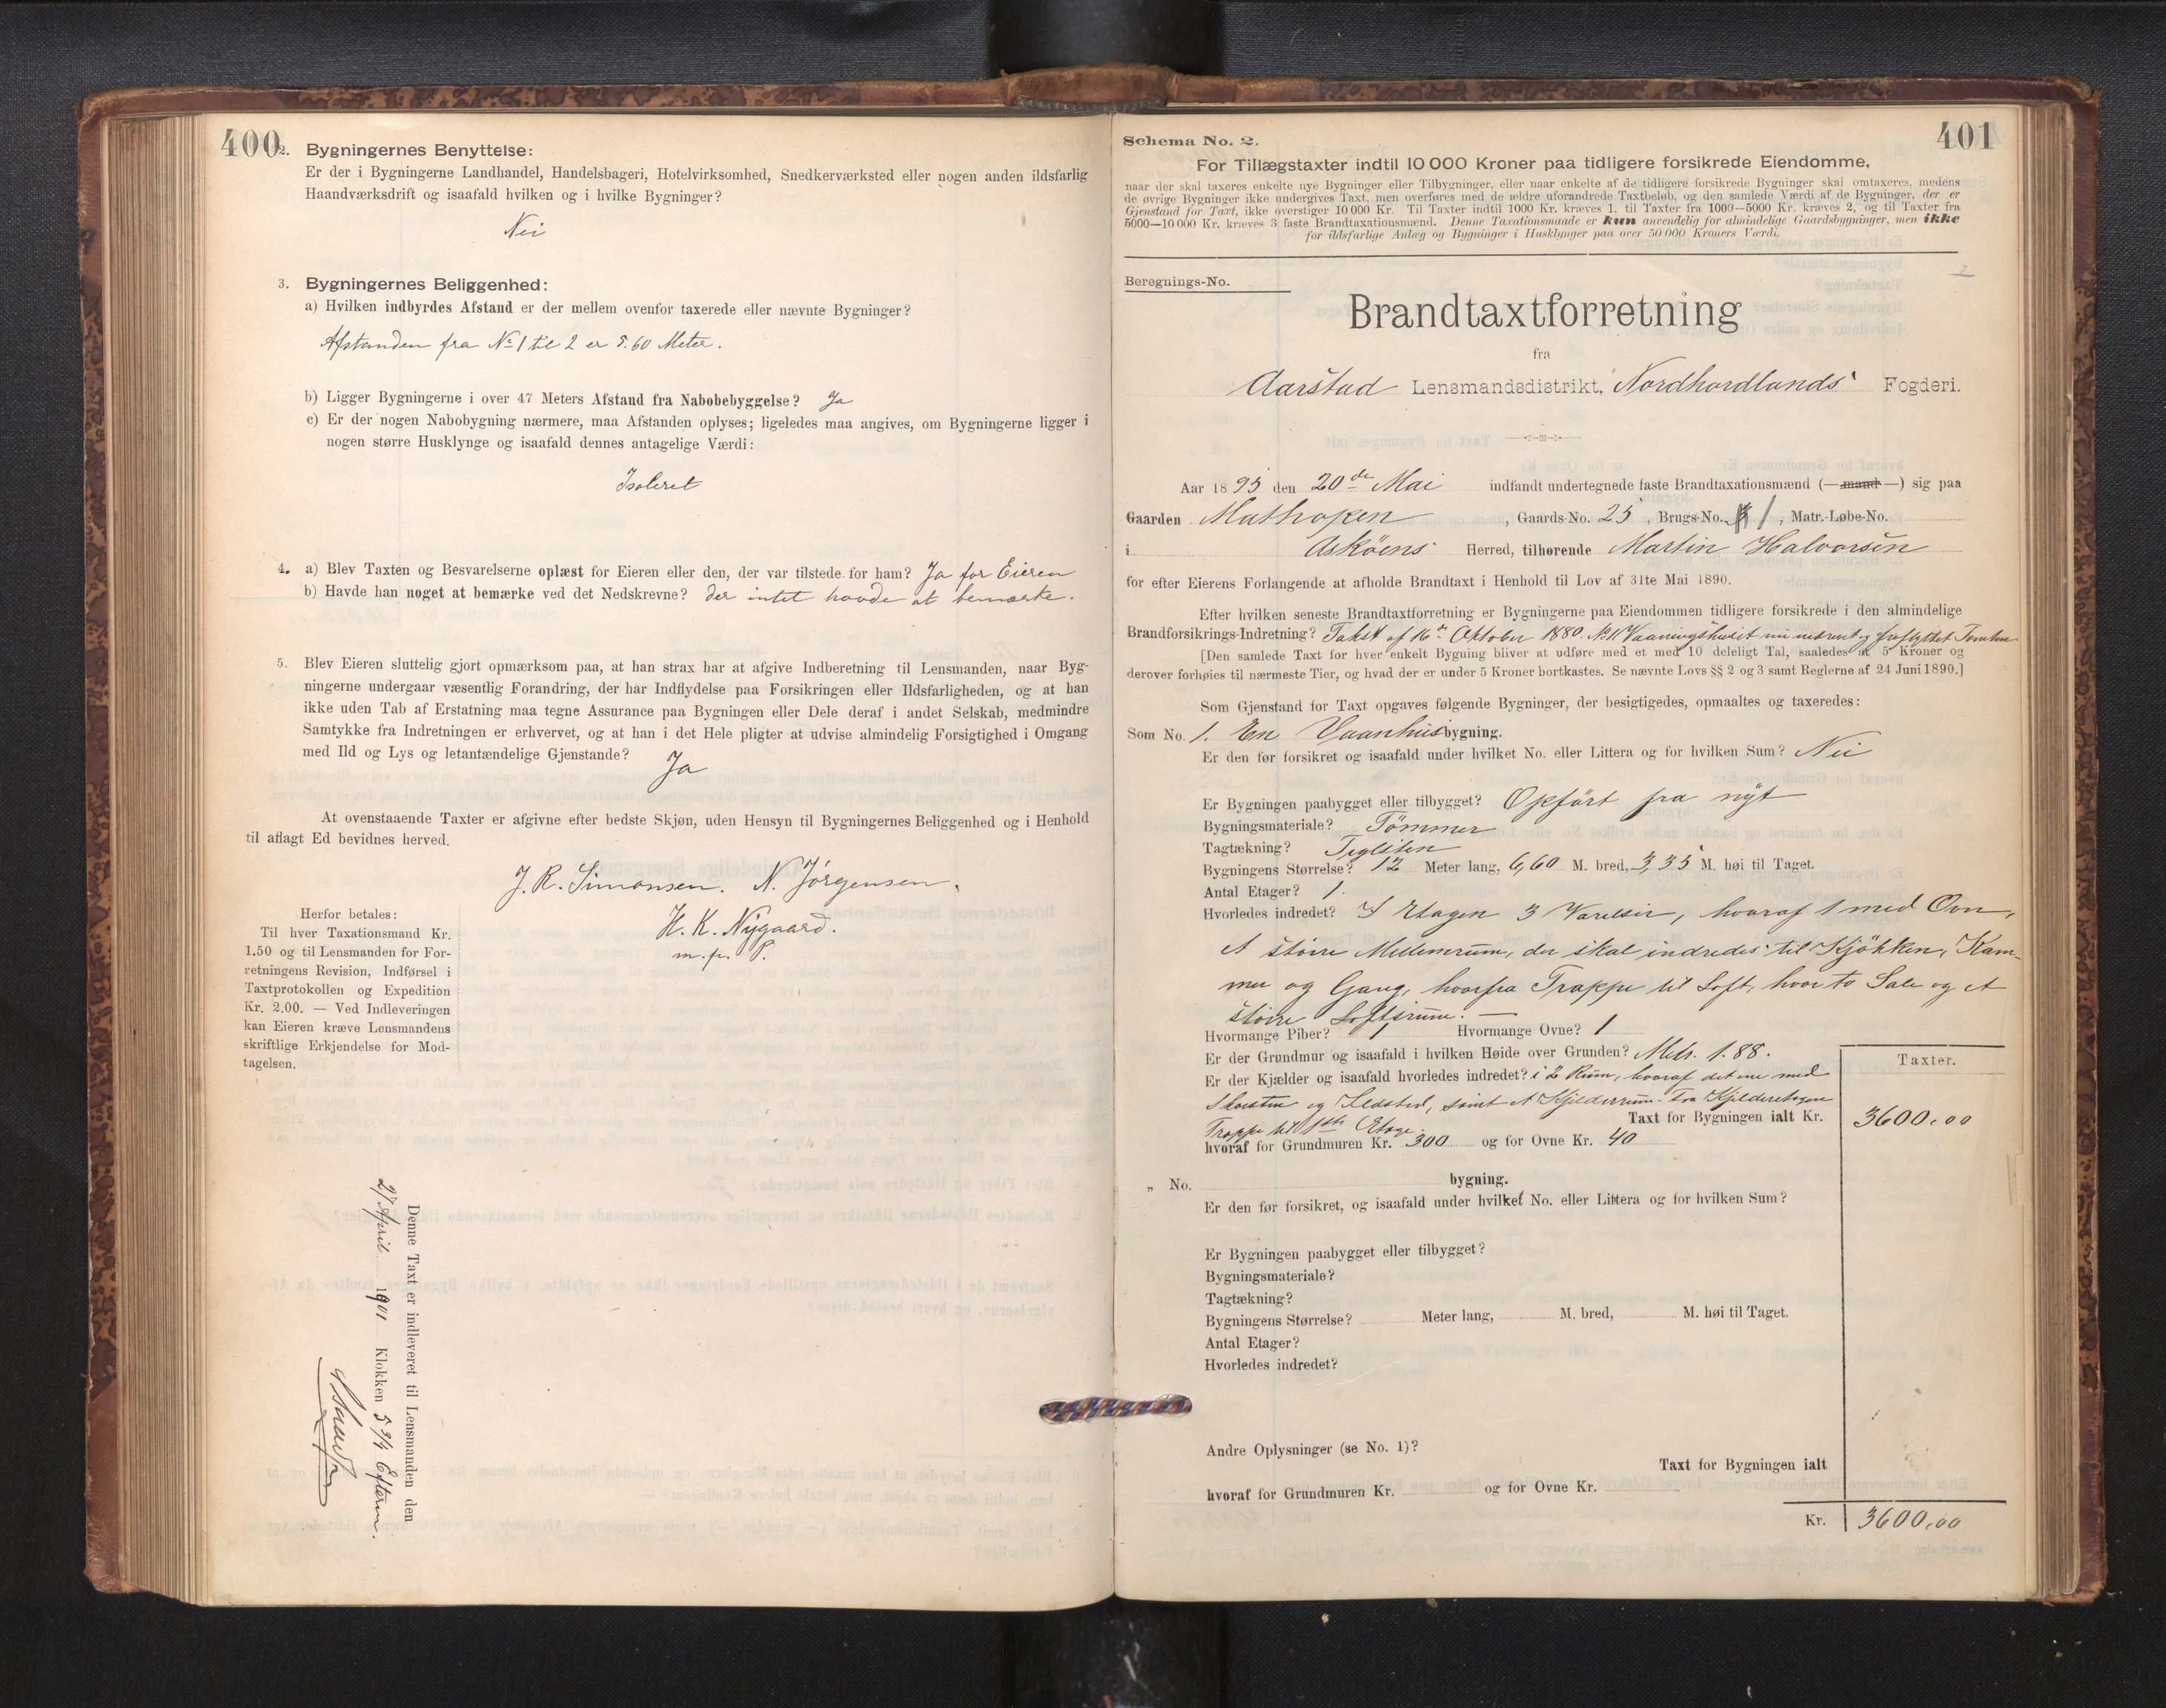 400
2. Bygningernes Benyttelse:
Er der i Bygningerne Landhandel, Handelsbageri, Hotelvirksomhed, Snedkerværksted eller nogen anden ildsfarlig
Haandværksdrift og isaafald hvilken og i hvilke Bygninger?
Nei
3. Bygningernes Beliggenhed:
a) Hvilken indbyrdes Afstand er der mellem ovenfor taxerede eller nævnte Bygninger?
Afstanden fra No 1 til 2 er 5.60 Meter.
b) Ligger Bygningerne i over 47 Meters Afstand fra Nabobebyggelse? Ja
c) Er der nogen Nabobygning nærmere, maa Afstanden oplyses; ligeledes maa angives, om Bygningerne ligger i
nogen større Husklynge og isaafald dennes antagelige Værdi:
Isoleret
4. a) Blev Taxten og Besvarelserne oplæst for Eieren eller den, der var tilstede for ham? Ja for Eieren
b) Havde han noget at bemærke ved det Nedskrevne? der intet havde at bemærke.
5. Blev Eieren sluttelig gjort opmærksom paa, at han strax har at afgive Indberetning til Lensmanden, naar Byg-
ningerne undergaar væsentlig Forandring, der har Indflydelse paa Forsikringen eller Ildsfarligheden, og at han
ikke uden Tab af Erstatning maa tegne Assurance paa Bygningen eller Dele deraf i andet Selskab, medmindre
Samtykke fra Indretningen er erhvervet, og at han i det Hele pligter at udvise almindelig Forsigtighed i Omgang
med Ild og Lys og letantændelige Gjenstande?
Ja
At ovenstaaende Taxter er afgivne efter bedste Skjøn, uden Hensyn til Bygningernes Beliggenhed og i Henhold
til aflagt Ed bevidnes herved.
J. R. Simonsen. N. Jørgensen.
H. K. Nygaard.
m. p. P.
Herfor betales:
Til hver Taxationsmand Kr.
1.50 og til Lensmanden for For-
retningens Revision, Indførsel i
Taxtprotokollen og Expedition
Kr. 2.00. — Ved Indleveringen
kan Eieren kræve Lensmandens
skriftlige Erkjendelse for Mod-
tagelsen.
Denne Taxt er indleveret til Lensmanden den
2/ April 1901 Klokken 5 3/4 Efterm.
401
Schema No. 2.
For Tillægstaxter indtil 10 000 Kroner paa tidligere forsikrede Eiendomme,
naar der skal taxeres enkelte nye Bygninger eller Tilbygninger, eller naar enkelte af de tidligere forsikrede Bygninger skal omtaxeres, medens
de øvrige Bygninger ikke undergives Taxt, men overføres med de ældre uforandrede Taxtbeløb, og den samlede Værdi af de Bygninger, der er
Gjenstand for Taxt, ikke overstiger 10 000 Kr. Til Taxter indtil 1000 Kr. kræves 1, til Taxter fra 1000—5000 Kr. kræves 2, og til Taxter fra
5000—10 000 Kr. kræves 3 faste Brandtaxationsmænd. Denne Taxationsmaade er kun anvendelig for almindelige Gaardsbygninger, men ikke
for ildsfarlige Anlæg og Bygninger i Husklynger paa over 50 000 Kroners Værdi.
2
Beregnings-No.
Brandtaxtforretning
fra
Aarstad Lensmandsdistrikt, Nordhordlands Fogderi.
Aar 1895 den 20de Mai indfandt undertegnede faste Brandtaxationsmænd (—mand—) sig paa
Gaarden Mathopen, Gaards-No. 25, Brugs-No. 1, Matr.-Løbe-No.
i Askøens Herred, tilhørende Martin Halvorsen
for efter Eierens Forlangende at afholde Brandtaxt i Henhold til Lov af 31te Mai 1890.
Efter hvilken seneste Brandtaxtforretning er Bygningerne paa Eiendommen tidligere forsikrede i den almindelige
Brandforsikrings-Indretning? Takst af 16de Oktober 1880. No 1 Vaaningshuset nu nedrevet og fraflyttet Tomten
[Den samlede Taxt for hver enkelt Bygning bliver at udføre med et med 10 deleligt Tal, saaledes at 5 Kroner og
derover forhøies til nærmeste Tier, og hvad der er under 5 Kroner bortkastes. Se nævnte Lovs §§ 2 og 3 samt Reglerne af 24 Juni 1890.]
Som Gjenstand for Taxt opgaves følgende Bygninger, der besigtigedes, opmaaltes og taxeredes:
Som No. 1. En Vaanhusbygning.
Er den før forsikret og isaafald under hvilket No. eller Littera og for hvilken Sum? Nei
Er Bygningen paabygget eller tilbygget? Opført fra nyt
Bygningsmateriale? Tømmer
Tagtækning? Teglsten
Bygningens Størrelse? 12 Meter lang, 6,60 M. bred, 3,35 M. høi til Taget.
Antal Etager? 1.
Hvorledes indredet? I Etagen 3 Værelser, hvoraf 1 med Ovn,
et større Mellemrum, der skal indredes til Kjøkken, Kam-
mer og Gang, hvorfra Trappe til Loft, hvor to Sale og et
større Loftsrum. —
Hvormange Piber? 1 Hvormange Ovne? 1
Er der Grundmur og isaafald i hvilken Høide over Grunden? Metr. 1.88.
Er der Kjælder og isaafald hvorledes indredet? i 2 Rum, hvoraf det ene med
Skorsten og Ildsted, samt et Kjelderrum. Fra Kjelderetagen
Trappe til 1ste Etage.
Taxter.
Taxt for Bygningen ialt Kr. 3600,00
hvoraf for Grundmuren Kr. 300 og for Ovne Kr. 40
„ No. bygning.
Er den før forsikret, og isaafald under hvilket No. eller Littera og for hvilken Sum?
Er Bygningen paabygget eller tilbygget?
Bygningsmateriale?
Tagtækning?
Bygningens Størrelse? Meter lang, M. bred, M. høi til Taget.
Antal Etager?
Hvorledes indredet?
Andre Oplysninger (se No. 1)?
Taxt for Bygningen ialt
hvoraf for Grundmuren Kr. og for Ovne Kr.
Kr. 3600,00